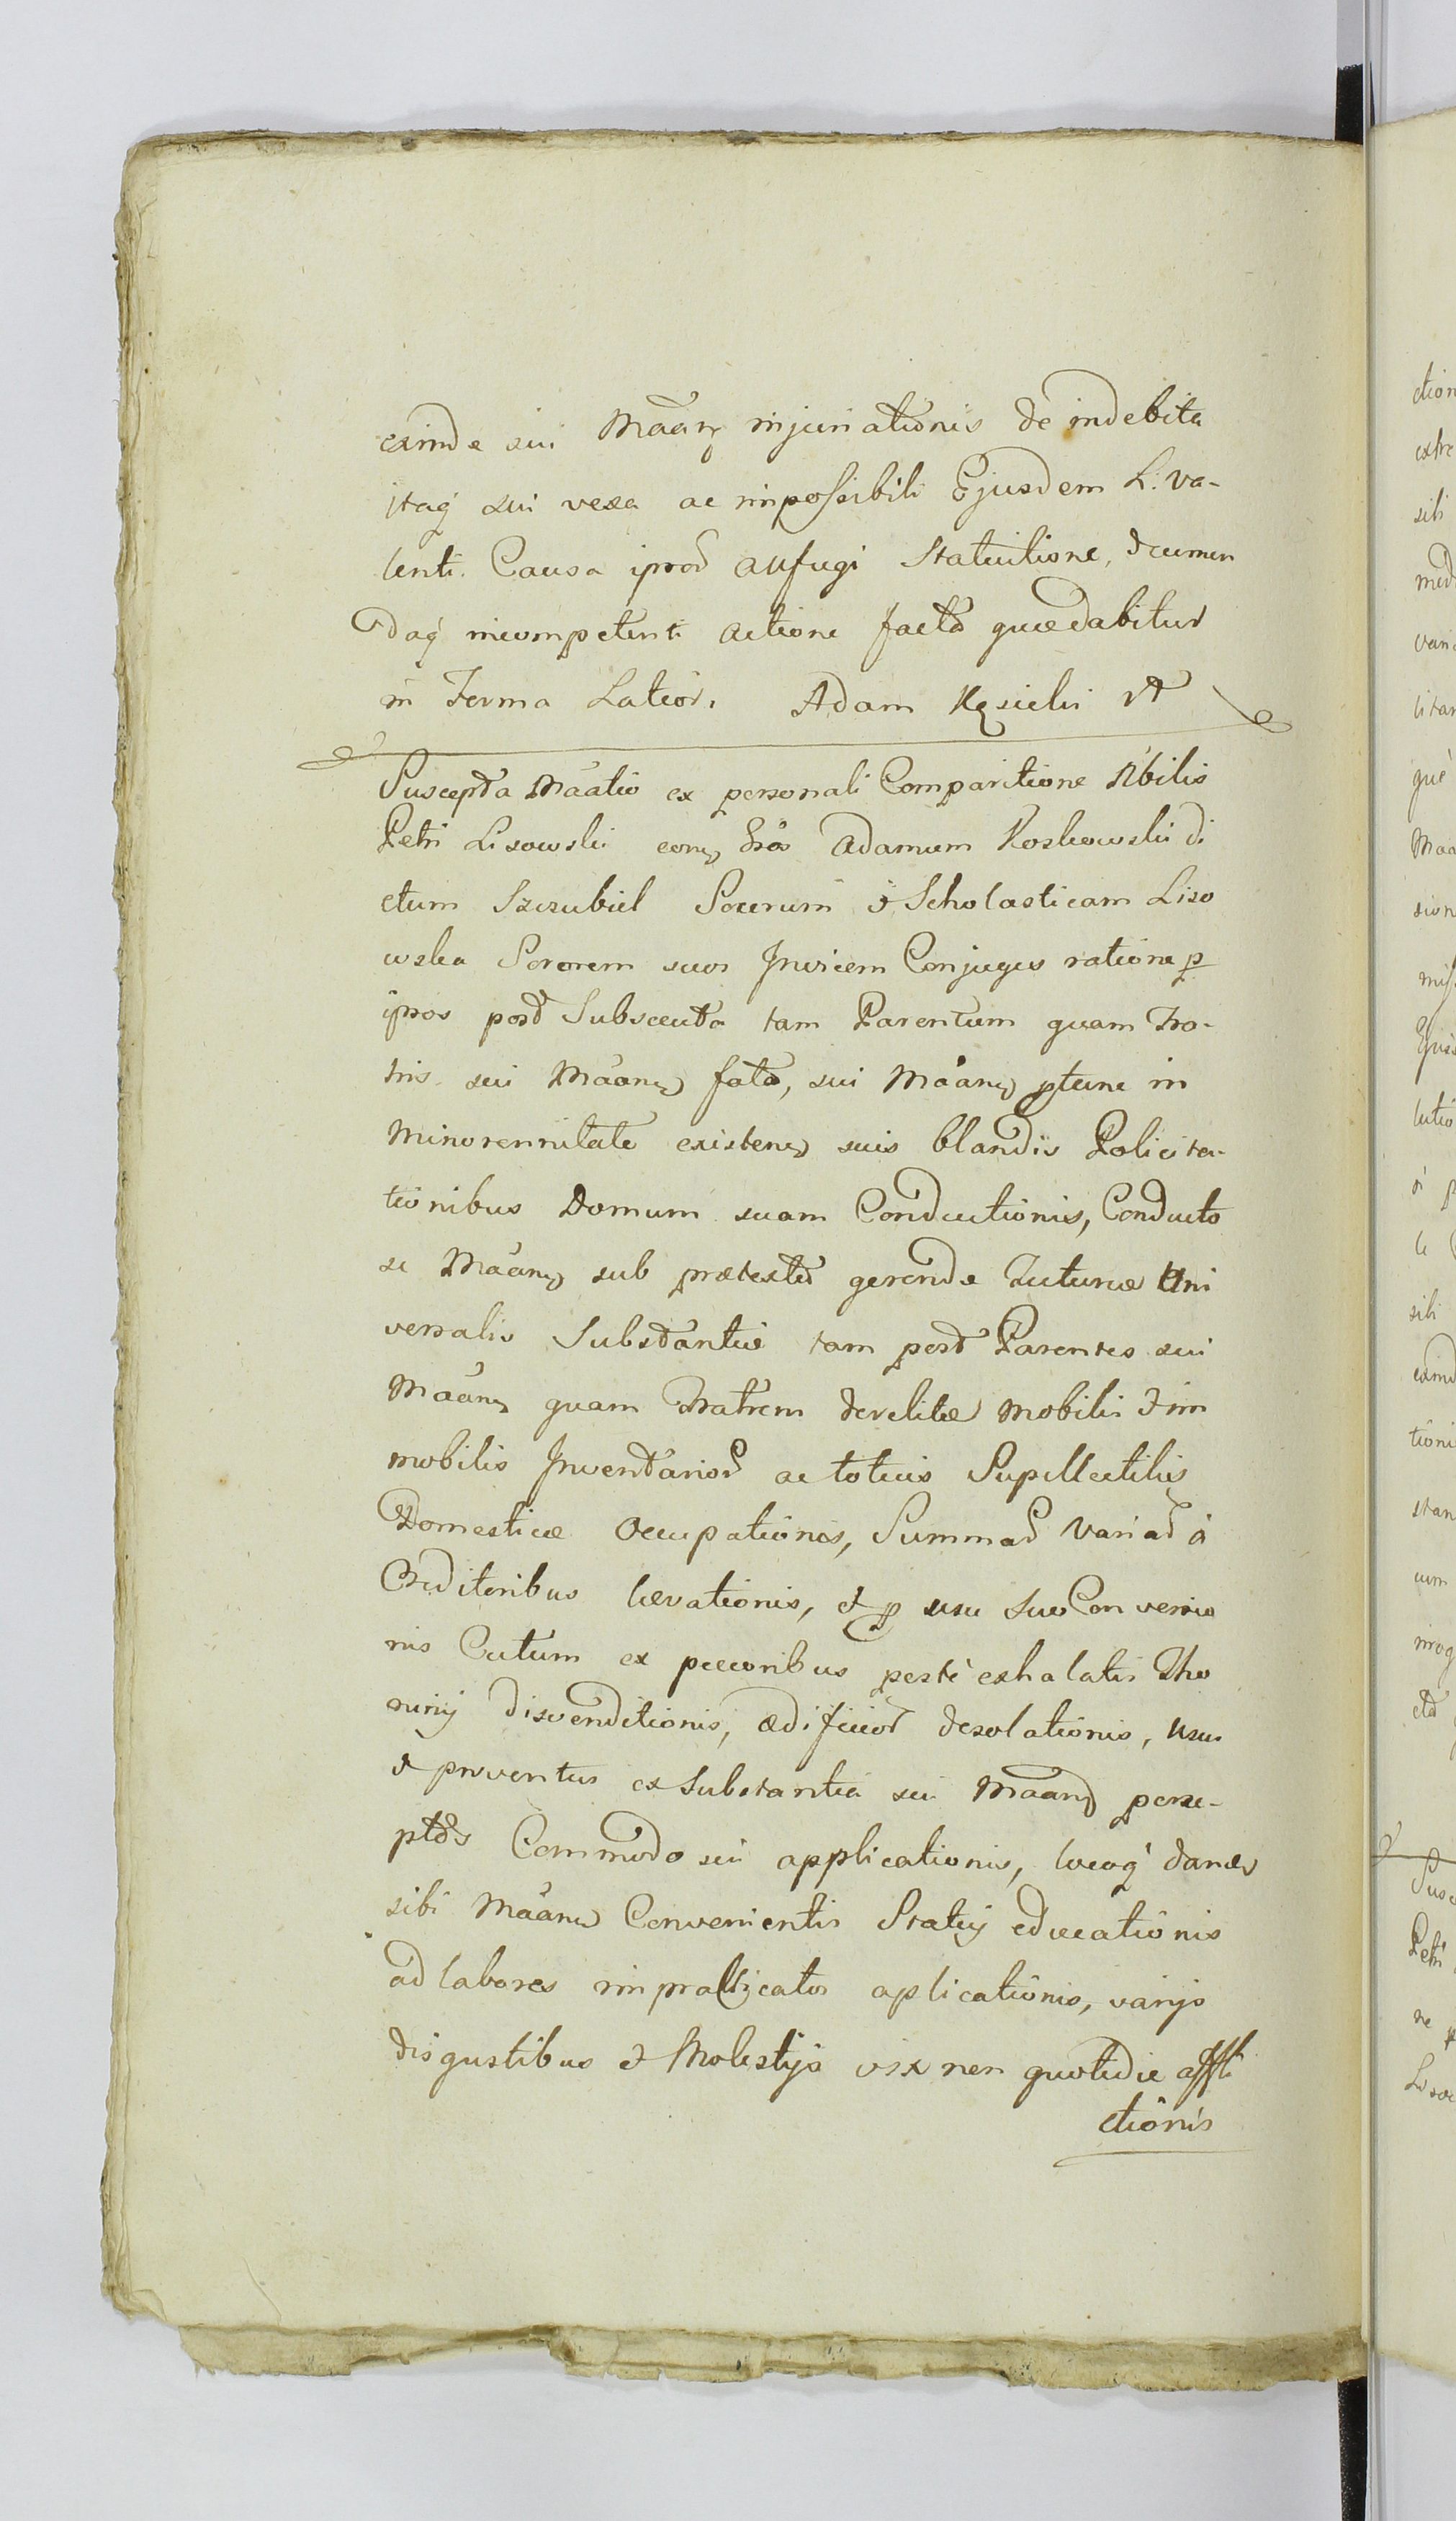 exinde sui Maań injuriationis de indebita
itaq sui vexa ac impossibili Ejusdem L. va-
lenti. Causa ipsor aufugi Statuitione, deumen
daq incompetenti actione facta quædabitur
in Termo Latior. Adam Kęsicki
Suscepta Maatio ex personali Comparitione Nbilis
Petri Lisowski Adamum Koskowski di
ctum Szczubiel Socerum & Scholasticam Liso
wska Sororem suos Invicem Conjuges ratione p
ipsos post Subsecuta tam Parentum quam Fra-
tris sui Maań fata, sui Maań ptunc in
Minorennitate existeń suis blandis Policita-
tionibus Domum suam Conductionis, Conducto
se Maań sub prætextu gerendæ Tuturæ Uni
versalis Substantiæ tam post Parentes sui
Maań quam Fratrem derelitæ mobilis & im
mobilis Inventarior ac totius Supellectilis
Domesticæ Occupationis, Summar Variar à
Creditoribus lævationis, et p usu suo Conversio
nis Cutum ex pecoribus peste exhalatis
disvenditionis, ædificior desolationis, usus
& proventus ex Substantia sui Maań perce-
ptos Commodo sui applicationis, locoq danæ
sibi Maań Convenientis Statuj educationis
ad labores impracticatos aplicationis, varijs
disgustibus & Molestijs vix non quotidie affli
ctionis
ction
extre
sibi
vari
litar
què
Maa
sion
lutio
sibi
exind
tioni
stan
irrog
Susc
Petri
ne
Lisow